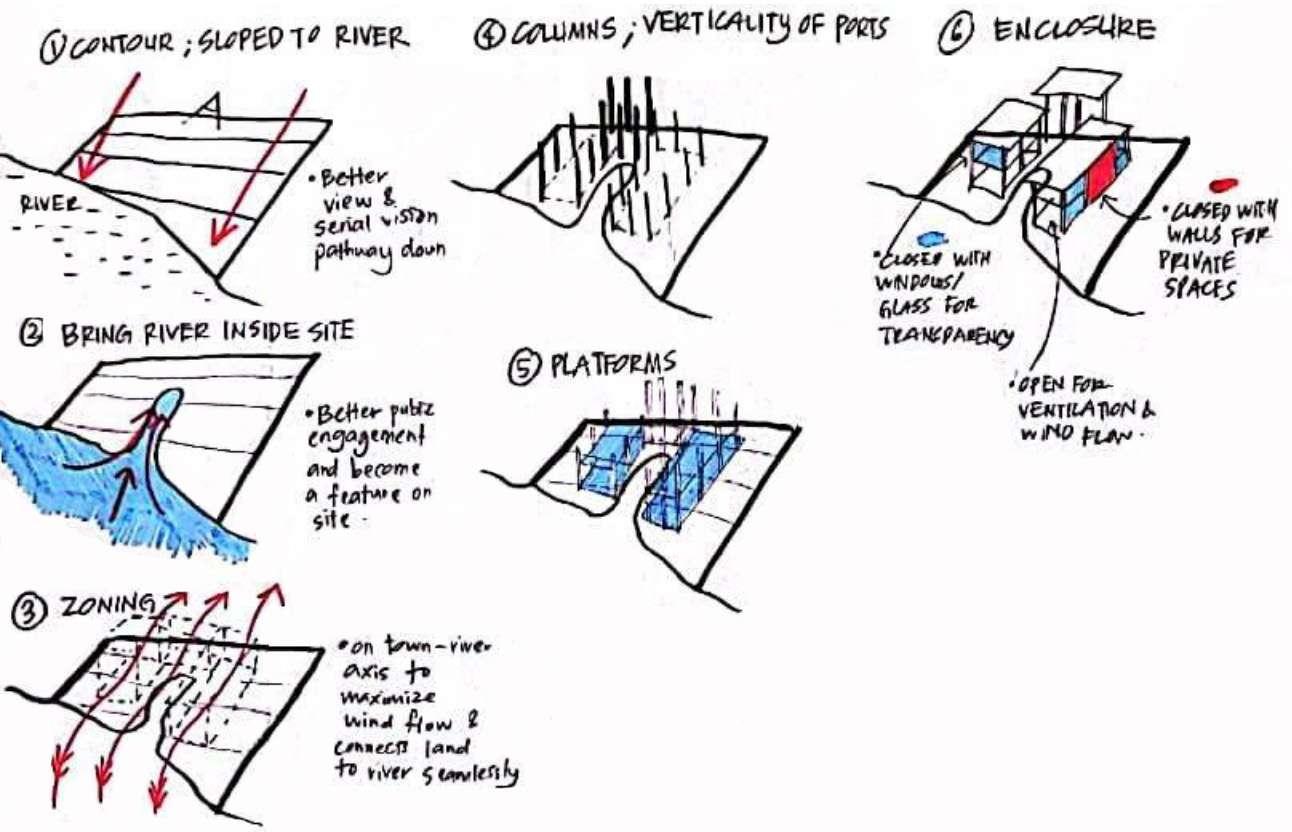 ① CONTOUR ; SLOPED TO RIVER
RIVER
• Better
view &
serial vision
pathway down
② BRING RIVER INSIDE SITE
• Better public
engagement
and become
a feature on
site.
③ ZONING
• on town-river
axis to
maximize
wind flow &
connects land
to river seamlessly
④ COLUMNS ; VERTICALITY OF PORTS
⑤ PLATFORMS
⑥ ENCLOSURE
• CLOSED WITH
WINDOWS/
GLASS FOR
TRANSPARENCY
• CLOSED WITH
WALLS FOR
PRIVATE
SPACES
• OPEN FOR
VENTILATION &
WIND FLOW.